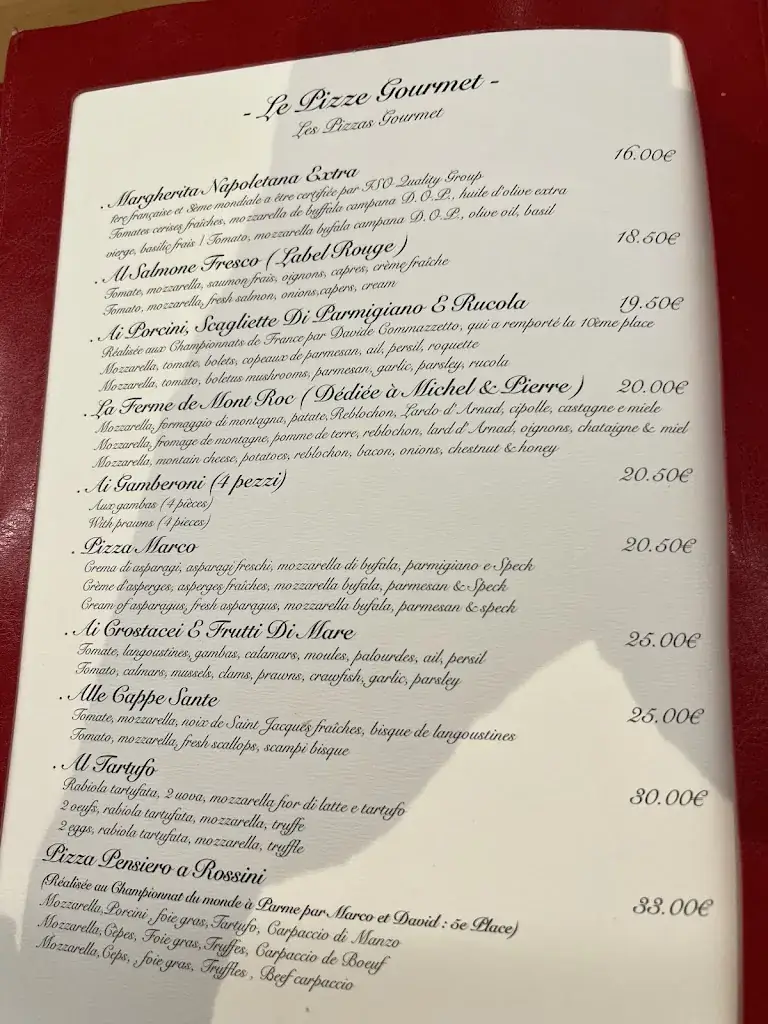 - Le Pizze Gourmet -
Les Pizzas Gourmet
. Margherita Napoletana Extra 16.00€
1ère française et 8ème mondiale a être certifiée par ISO Quality Group
Tomates cerises fraîches, mozzarella de buffala campana D.O.P., huile d'olive extra
vierge, basilic frais | Tomato, mozzarella bufala campana D.O.P., olive oil, basil
. Al Salmone Fresco ( Label Rouge ) 18.50€
Tomate, mozzarella, saumon frais, oignons, capres, crème fraîche
Tomato, mozzarella, fresh salmon, onions,capers, cream
. Ai Porcini, Scagliette Di Parmigiano E Rucola 19.50€
Réalisée aux Championnats de France par Davide Commazzetto, qui a remporté la 10ème place
Mozzarella, tomate, bolets, copeaux de parmesan, ail, persil, roquette
Mozzarella, tomato, boletus mushrooms, parmesan, garlic, parsley, rucola
. La Ferme de Mont Roc ( Dédiée à Michel & Pierre ) 20.00€
Mozzarella, formaggio di montagna, patate, Reblochon, Lardo d'Arnad, cipolle, castagne e miele
Mozzarella, fromage de montagne, pomme de terre, reblochon, lard d'Arnad, oignons, chataigne & miel
Mozzarella, montain cheese, potatoes, reblochon, bacon, onions, chestnut & honey
. Ai Gamberoni (4 pezzi) 20.50€
Aux gambas (4 pièces)
With prawns (4 pieces)
. Pizza Marco 20.50€
Crema di asparagi, asparagi freschi, mozzarella di bufala, parmigiano e Speck
Crème d'asperges, asperges fraîches, mozzarella bufala, parmesan & Speck
Cream of asparagus, fresh asparagus, mozzarella bufala, parmesan & speck
. Ai Crostacei E Frutti Di Mare 25.00€
Tomate, langoustines, gambas, calamars, moules, palourdes, ail, persil
Tomato, calmars, mussels, clams, prawns, crawfish, garlic, parsley
. Alle Cappe Sante 25.00€
Tomate, mozzarella, noix de Saint Jacques fraîches, bisque de langoustines
Tomato, mozzarella, fresh scallops, scampi bisque
. Al Tartufo 30.00€
Rabiola tartufata, 2 uova, mozzarella fior di latte e tartufo
2 oeufs, rabiola tartufata, mozzarella, truffe
2 eggs, rabiola tartufata, mozzarella, truffle
Pizza Pensiero a Rossini 33.00€
(Réalisée au Championnat du monde à Parme par Marco et David : 5e Place)
Mozzarella,Porcini , foie gras, Tartufo, Carpaccio di Manzo
Mozzarella, Cèpes, Foie gras, Truffes, Carpaccio de Boeuf
Mozzarella, Ceps, , foie gras, Truffles , Beef carpaccio